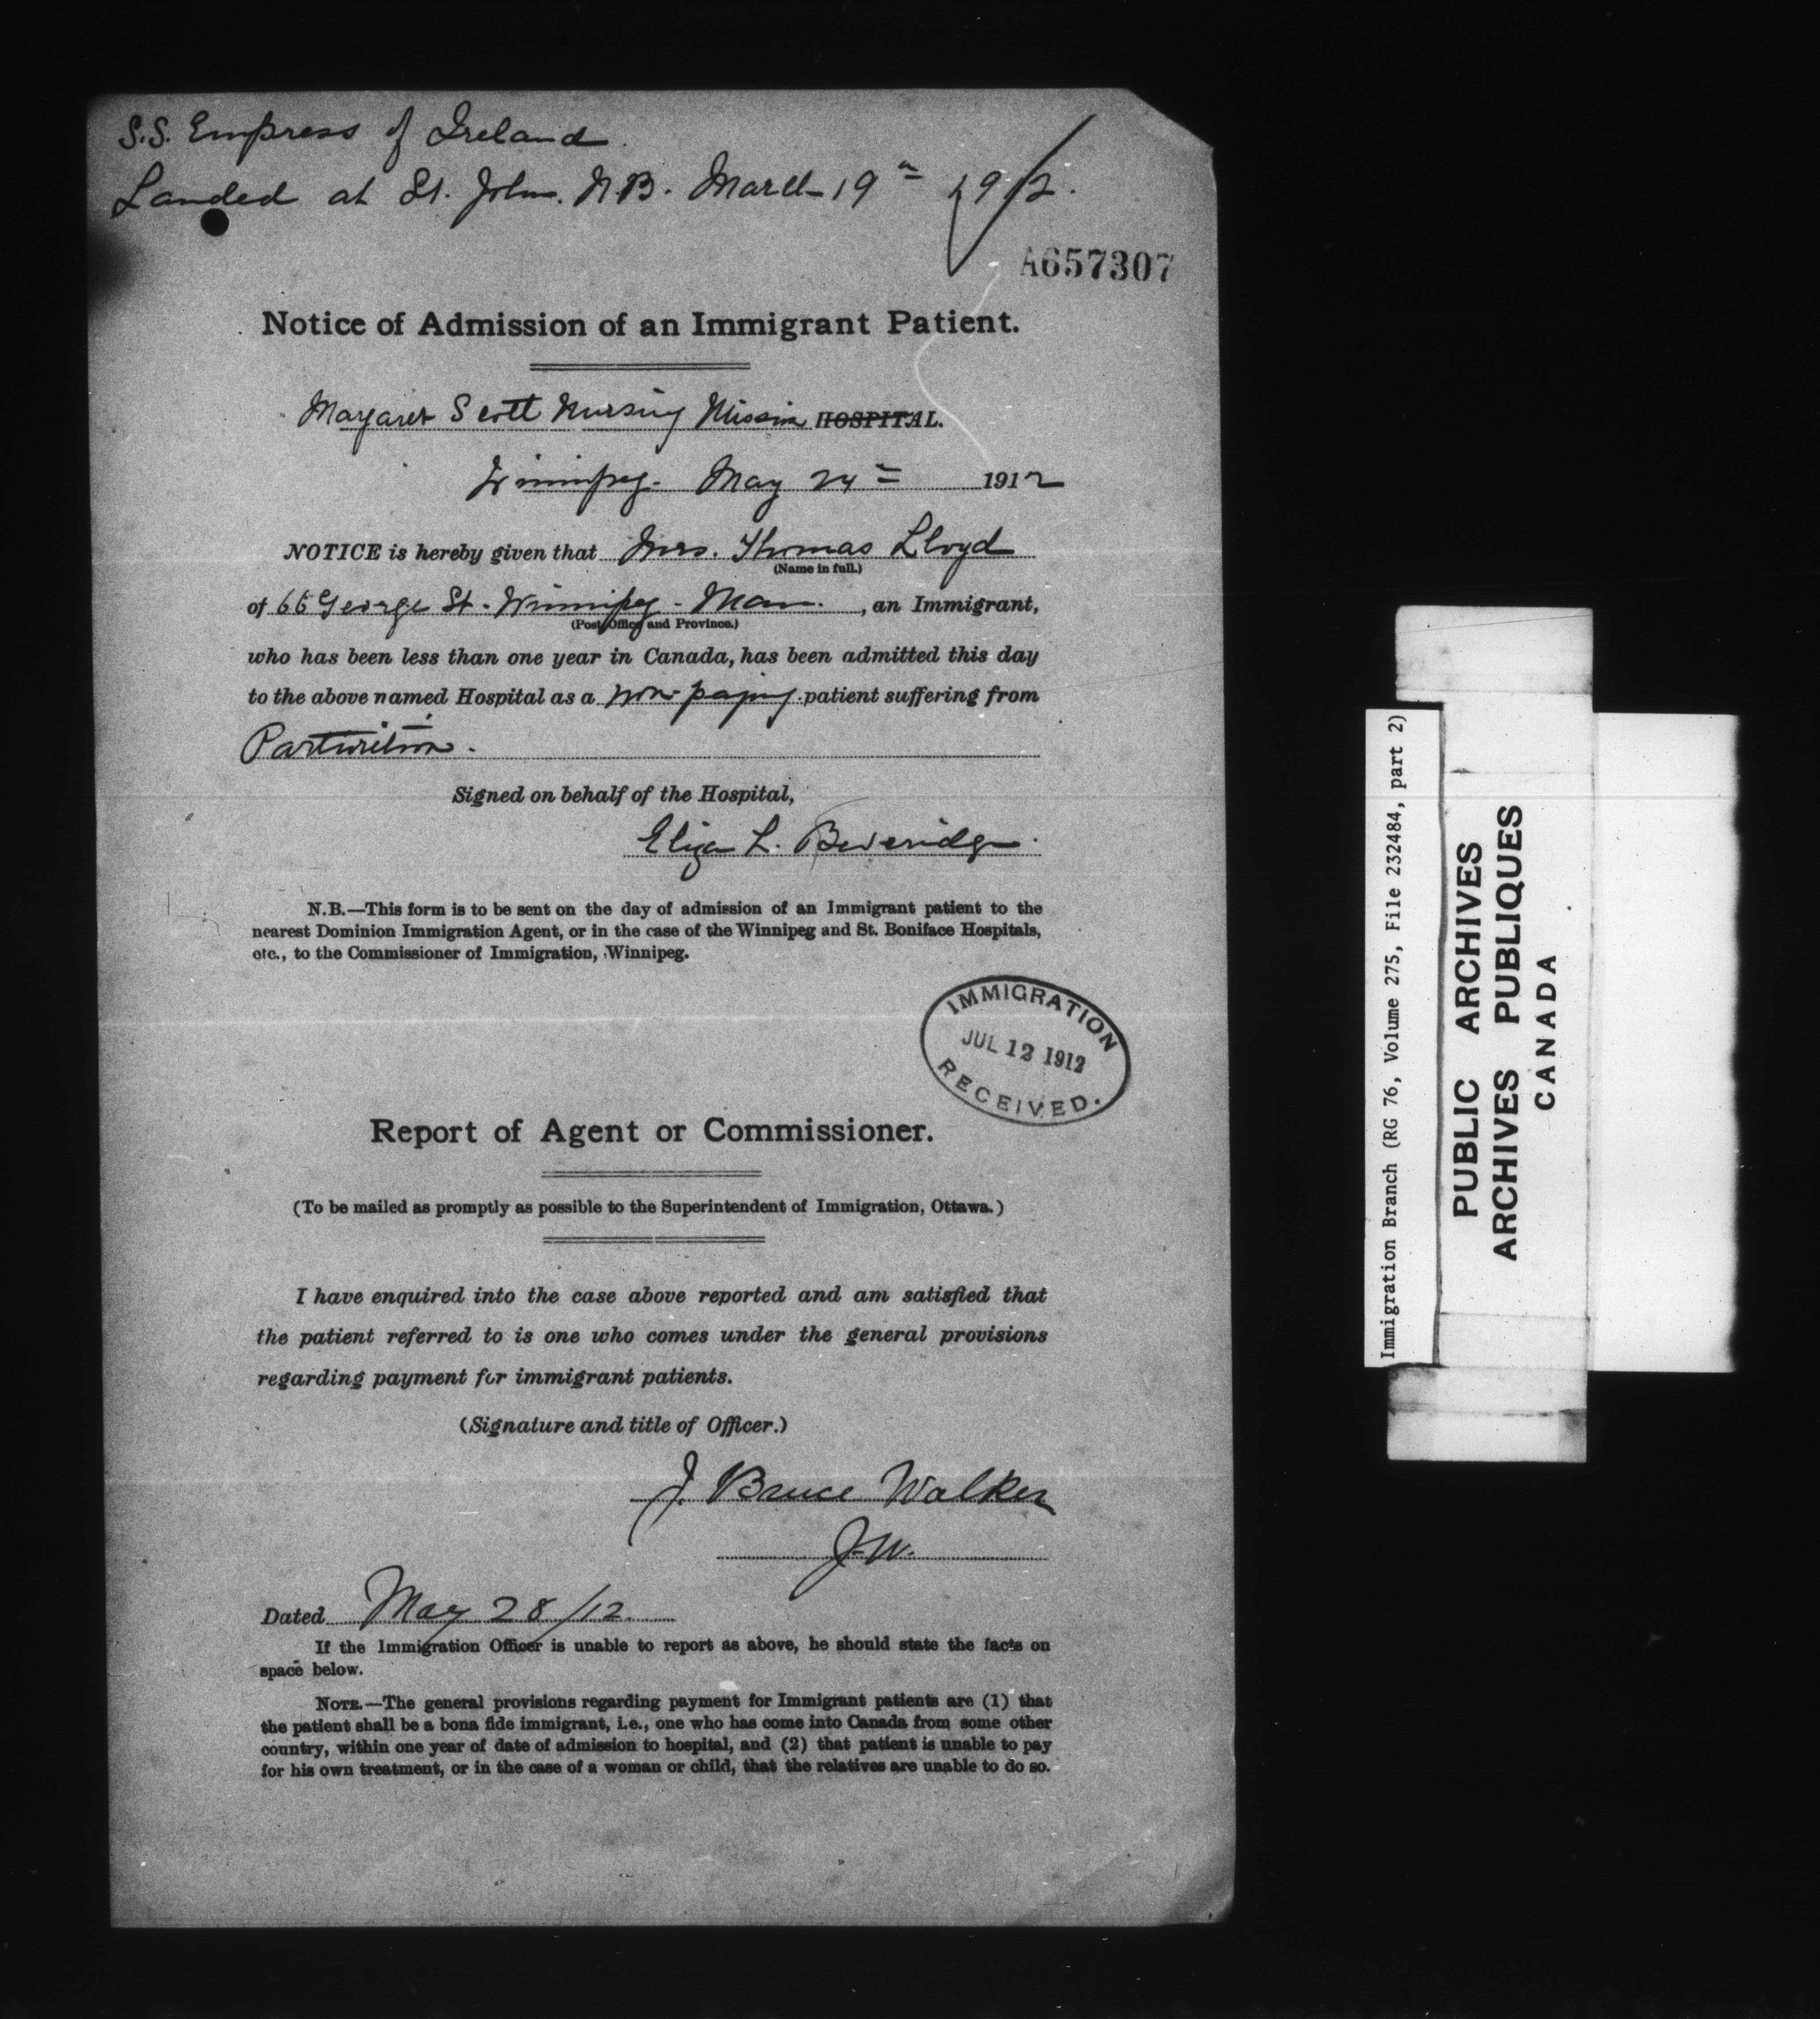 S.S. Empress of Ireland.
Landed at St. John. N.B. March 19th 1912.
A657307
Notice of Admission of an Immigrant Patient.
Margaret Scott Nursing Mission HOSPITAL.
Winnipeg. May 24th 1912
NOTICE is hereby given that Mrs. Thomas Lloyd
(Name in full.)
of 66 George St. Winnipeg - Man. , an Immigrant,
(Post Office and Province.)
who has been less than one year in Canada, has been admitted this day
to the above named Hospital as a non-paying patient suffering from
Parturition.
Signed on behalf of the Hospital,
Eliza L. Beveridge.
N.B.—This form is to be sent on the day of admission of an Immigrant patient to the
nearest Dominion Immigration Agent, or in the case of the Winnipeg and St. Boniface Hospitals,
etc., to the Commissioner of Immigration, Winnipeg.
IMMIGRATION
JUL 12 1912
RECEIVED.
Report of Agent or Commissioner.
(To be mailed as promptly as possible to the Superintendent of Immigration, Ottawa.)
I have enquired into the case above reported and am satisfied that
the patient referred to is one who comes under the general provisions
regarding payment for immigrant patients.
(Signature and title of Officer.)
J. Bruce Walker
J.W.
Dated May 28/12.
If the Immigration Officer is unable to report as above, he should state the facts on
space below.
NOTE.—The general provisions regarding payment for Immigrant patients are (1) that
the patient shall be a bona fide immigrant, i.e., one who has come into Canada from some other
country, within one year of date of admission to hospital, and (2) that patient is unable to pay
for his own treatment, or in the case of a woman or child, that the relatives are unable to do so.
Immigration Branch (RG 76, Volume 275, File 232484, part 2)
PUBLIC ARCHIVES
ARCHIVES PUBLIQUES
CANADA